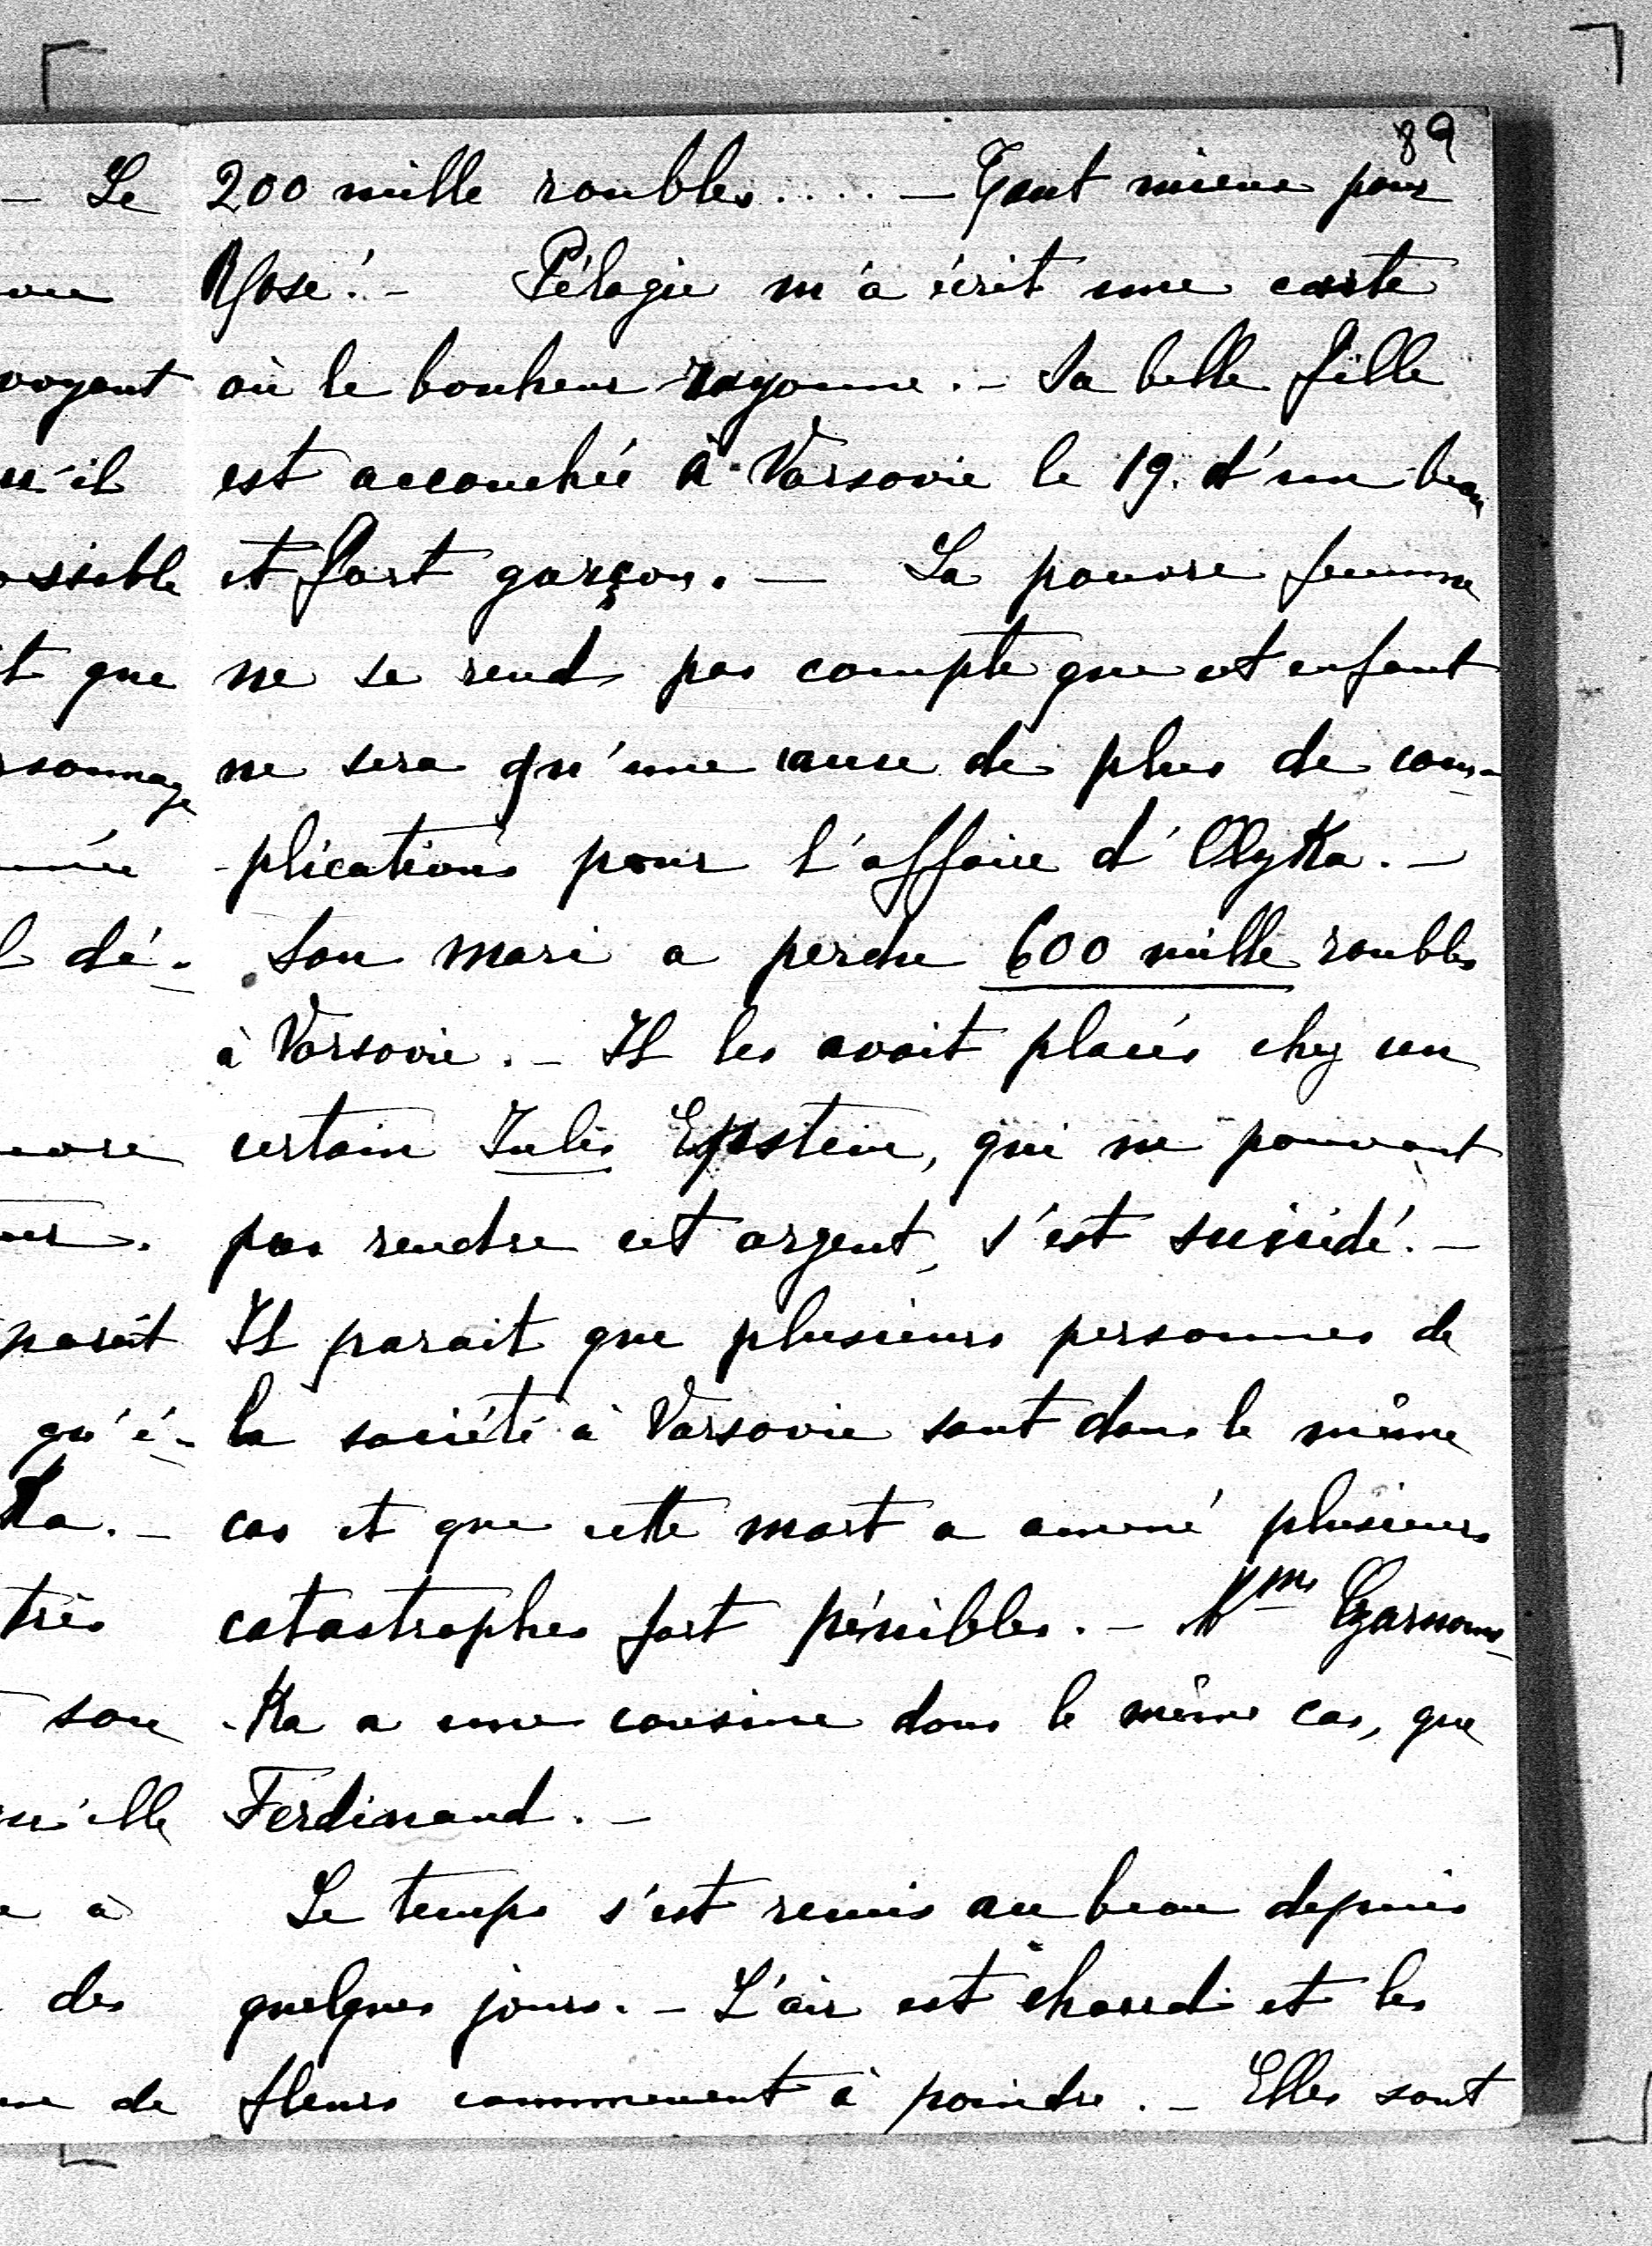 89
200 mille roubles..... — Tant mieux pour
Rose! — Pélagie m'a écrit une carte
où le bonheur rayonne. — Sa belle fille
est accouchée à Varsovie le 19. d'un beau
et fort garçon. — La pauvre femme
ne se rend pas compte que cet enfant
ne sera qu'une cause de plus de com-
-plications pour l'affaire d'Olyka. —
Son mari a perdu 600 mille roubles
à Varsovie. — Il les avait placés chez un
certain Jules Epstein, qui ne pouvant
pas rendre cet argent, s'est suicidé. —
Il parait que plusieurs personnes de
la société à Varsovie sont dans le même
cas et que cette mort a amené plusieurs
catastrophes fort pénibles. — Mme Czarnows-
-ka a une cousine dans le même cas, que
Ferdinand. —
Le temps s'est remis au beau depuis
quelques jours. — L'air est chaud et les
fleurs commencent à poindre. — Elles sont
— Le
voyant
qu'il
que
dé-
parait
qu'é-
ka. —
très
son
qu'elle
à
des
de